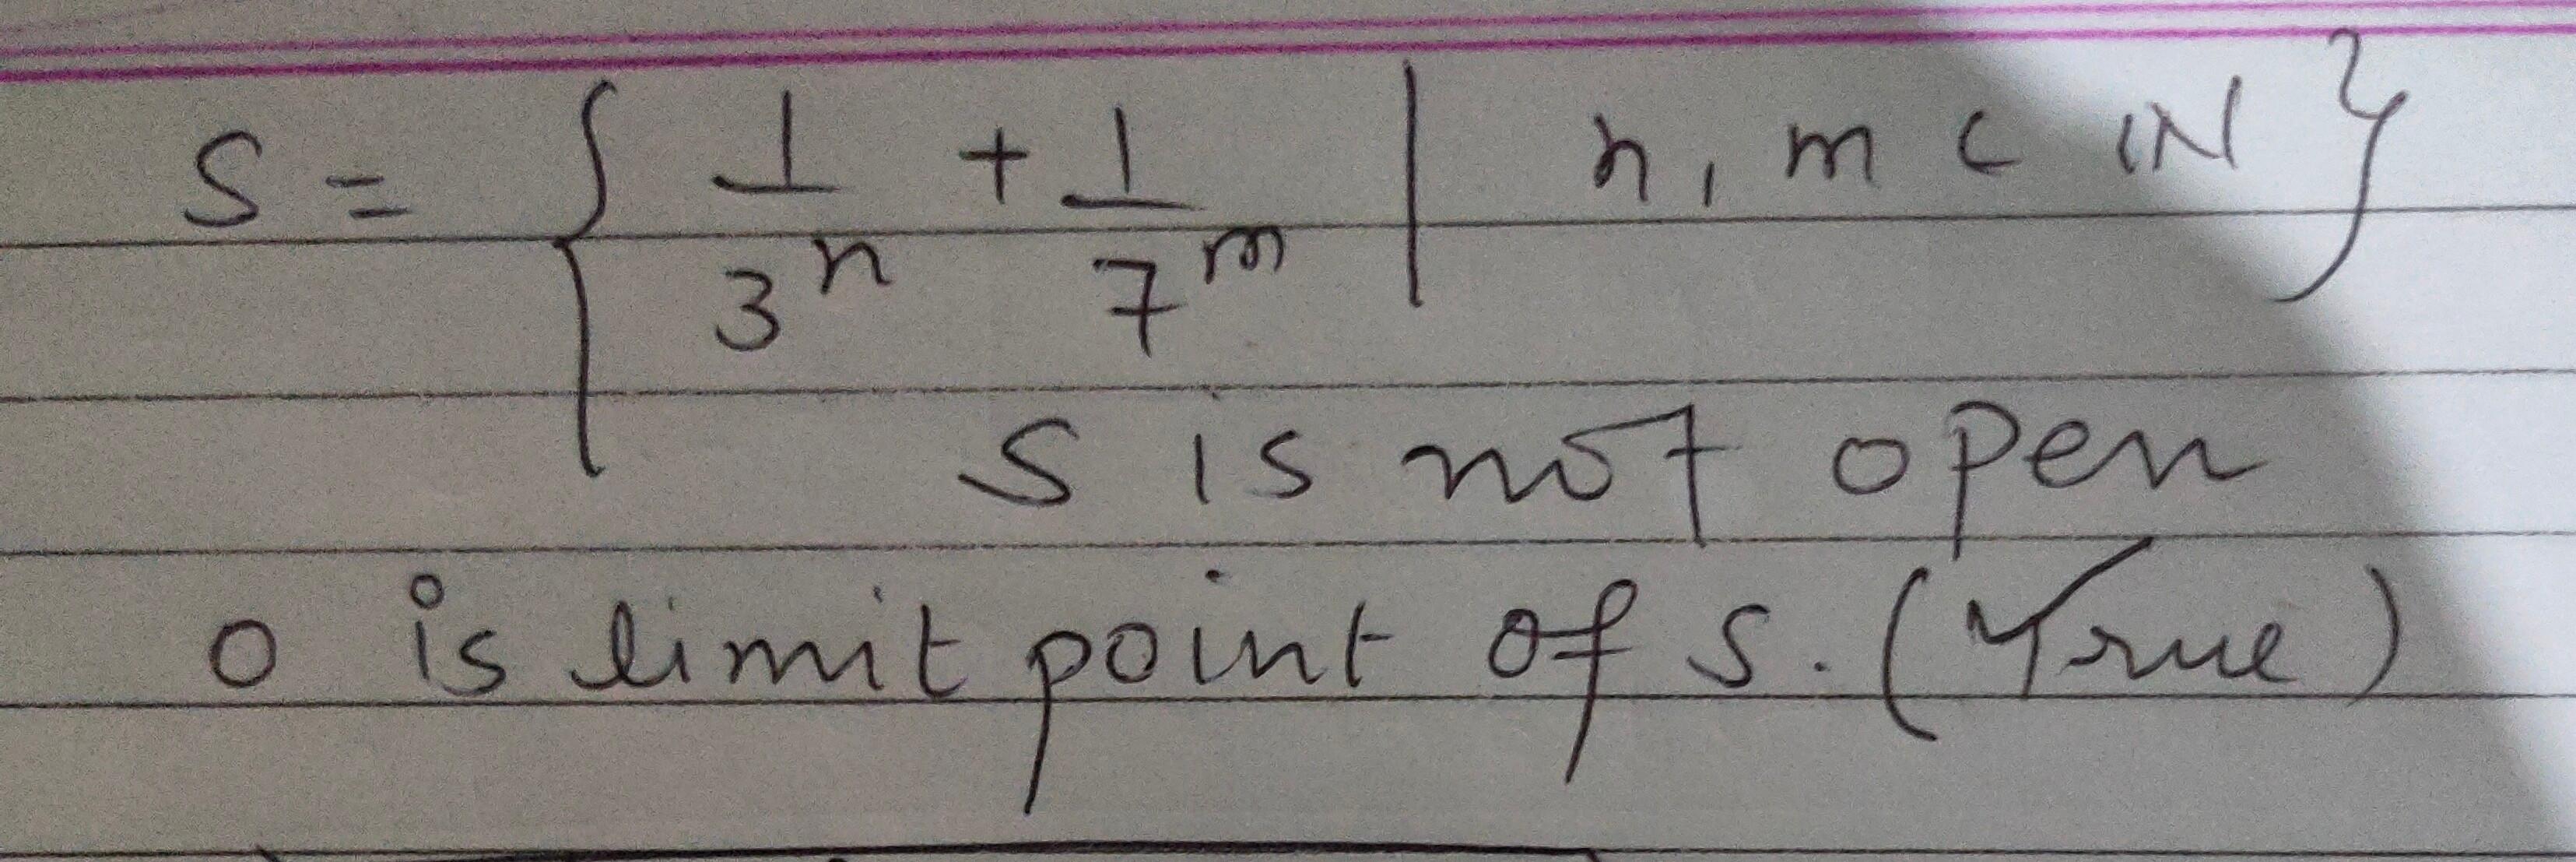 S = { 1/3^n + 1/7^m | n, m ∈ IN }
S is not open
0 is limit point of S. (True)